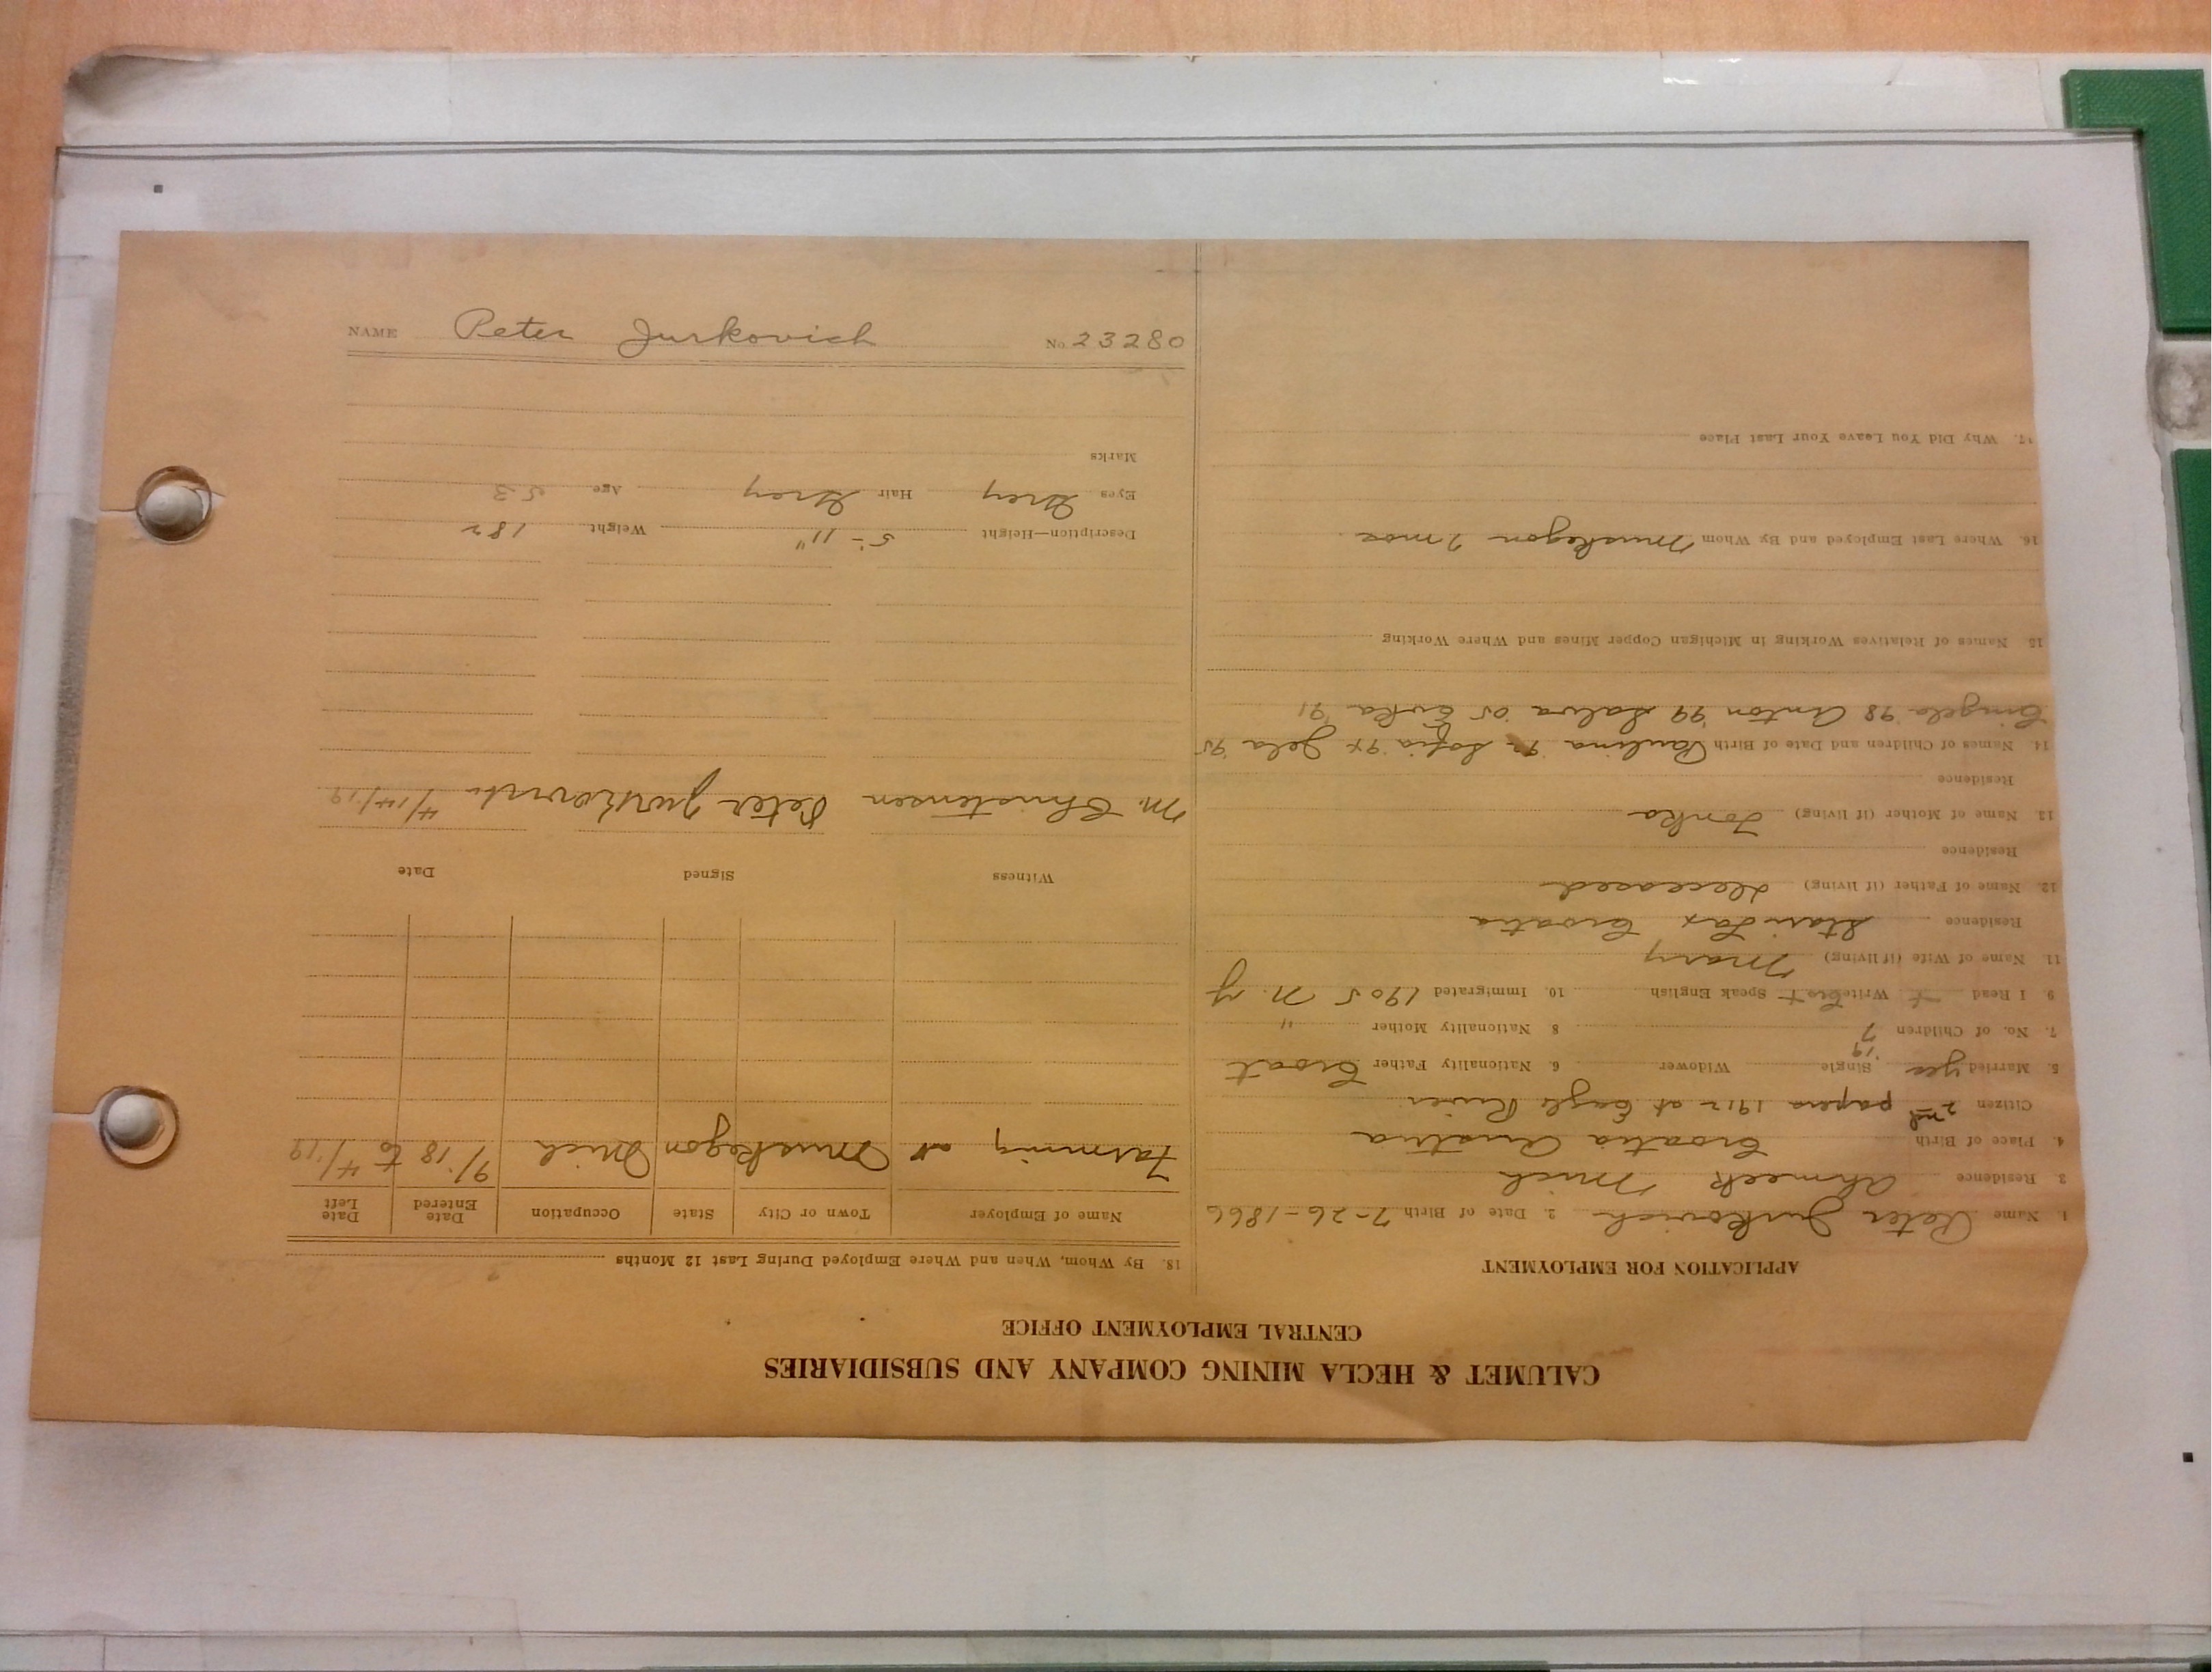 CALUMET & HECLA MINING COMPANY AND SUBSIDIARIES
CENTRAL EMPLOYMENT OFFICE
APPLICATION FOR EMPLOYMENT
1. Name Peter Jurkovich 2. Date of Birth 7-26-1866
3 Residence Ahmeek Mich
4. Place of Birth Croatia Austria
Citizen 2nd papers 1912 at Eagle River
5. Married yes '19 Single Widower 6. Nationality Father Croat
7. No. of Children 7 8 Nationality Mother "
9 I Read + Write Croat + Speak English 10. Immigrated 1905 N. Y
11. Name of Wife (if living) Mary
Residence Croatia
12. Name of Father (if living) deceased
Residence
13. Name of Mother (if living) Jonka
Residence
14. Names of Children and Date of Birth Paulina Sofia Jela 95
98 Anton 99 05 91
15 Names of Relatives Working in Michigan Copper Mines and Where Working
16. Where Last Employed and By Whom Muskegon 7 mos
17. Why Did You Leave Your Last Place
18. By Whom, When and Where Employed During Last 12 Months
Name of Employer Town or City State Occupation Date Entered Date Left
Farming at Muskegon Mich 9/18 to 4/19
Witness Signed Date
M. Christensen Peter 4/14/19
Description—Height 5-11" Weight 182
Eyes Grey Hair Grey Age 53
Marks
NAME Peter Jurkovich No. 23280